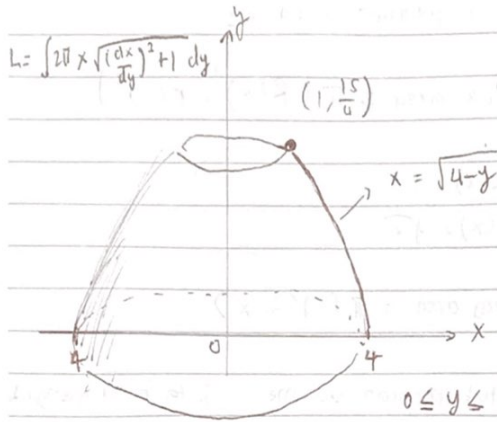 y
L = ∫2π x √((dx/dy)² + 1) dy
(1, 15/4)
x = √4-y
x
4
0
4
0 ≤ y ≤